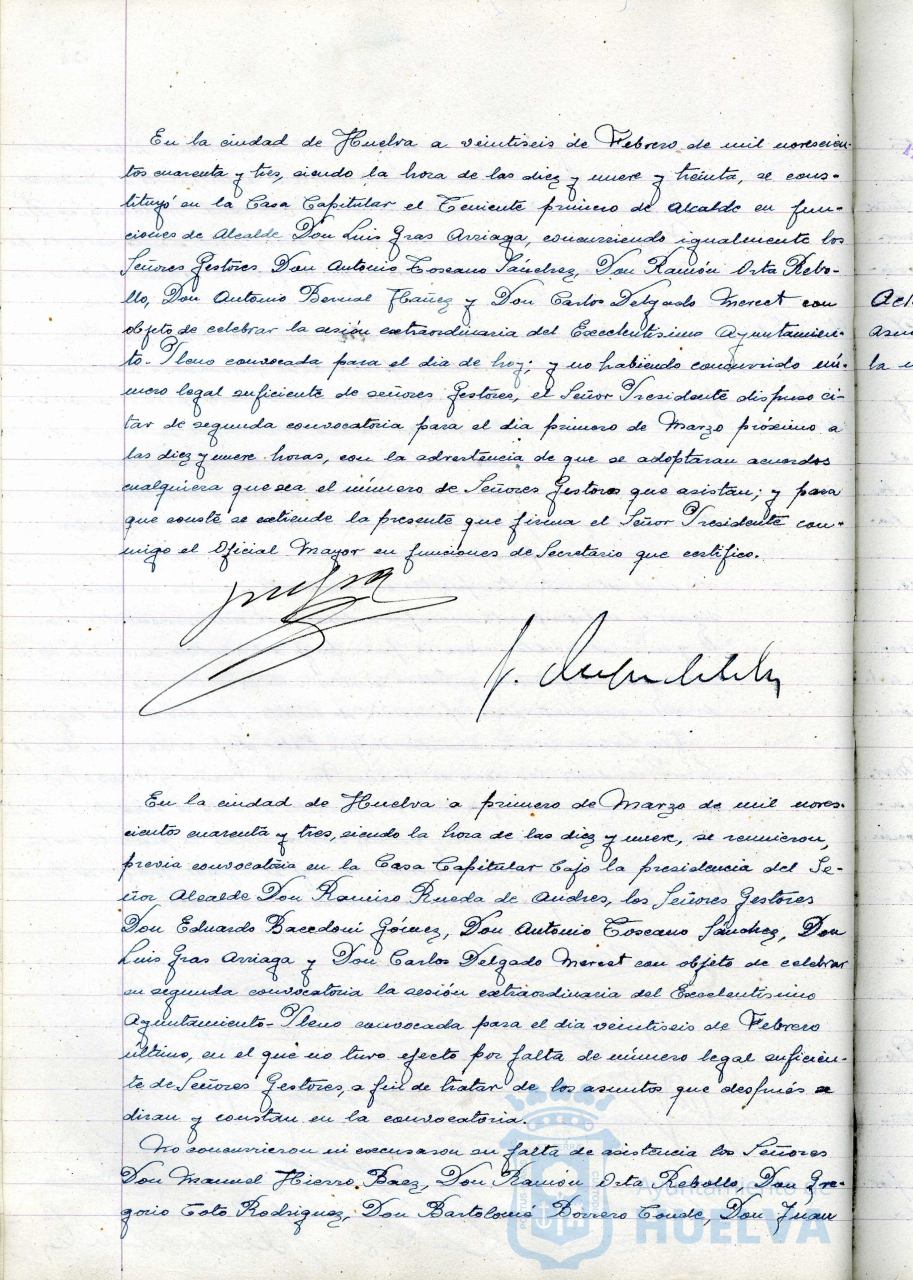 En la ciudad de Huelva a veintiseis de Febrero de mil novescien-
tos cuarenta y tres, siendo la hora de las diez y nueve y treinta, se cons-
tituyó en la Casa Capitular el Teniente primero de Alcalde en fun-
ciones de Alcalde Don Luis Gras Arriaga, concurriendo igualmente los
Señores Gestores Don Antonio Toscano Sánchez, Don Ramón Orta Rebo-
llo, Don Antonio Bernal Ibáñez y Don Carlos Delgado Mercet con
objeto de celebrar la sesión extraordinaria del Excelentísimo Ayuntamien-
to-Pleno convocada para el dia de hoy; y no habiendo concurrido nú-
mero legal suficiente de señores Gestores, el Señor Presidente dispuso ci-
tar de segunda convocatoria para el dia primero de Marzo próximo a
las diez y nueve horas, con la advertencia de que se adoptaran acuerdos
cualquiera que sea el número de Señores Gestores que asistan; y para
que conste se extiende la presente que firma el Señor Presidente con-
migo el Oficial Mayor en funciones de Secretario que certifico.
En la ciudad de Huelva a primero de Marzo de mil noves-
cientos cuarenta y tres, siendo la hora de las diez y nueve, se reunieron,
previa convocatoria en la Casa Capitular bajo la presidencia del Se-
ñor Alcalde Don Ramiro Rueda de Andres, los Señores Gestores
Don Eduardo Bacedoni Gómez, Don Antonio Toscano Sánchez, Don
Luis Gras Arriaga y Don Carlos Delgado Mercet con objeto de celebrar
en segunda convocatoria la sesión extraordinaria del Excelentísimo
Ayuntamiento-Pleno convocada para el dia veintiseis de Febrero
último, en el que no tuvo efecto por falta de número legal suficien-
te de Señores Gestores, a fin de tratar de los asuntos que después se
diran y constan en la convocatoria.
No concurrieron ni excusaron su falta de asistencia los Señores
Don Manuel Hierro Baez, Don Ramón Orta Rebollo, Don Gre-
gorio Toto Rodriguez, Don Bartolomé Borrero Conde, Don Juan
Ayuntamiento de
HUELVA